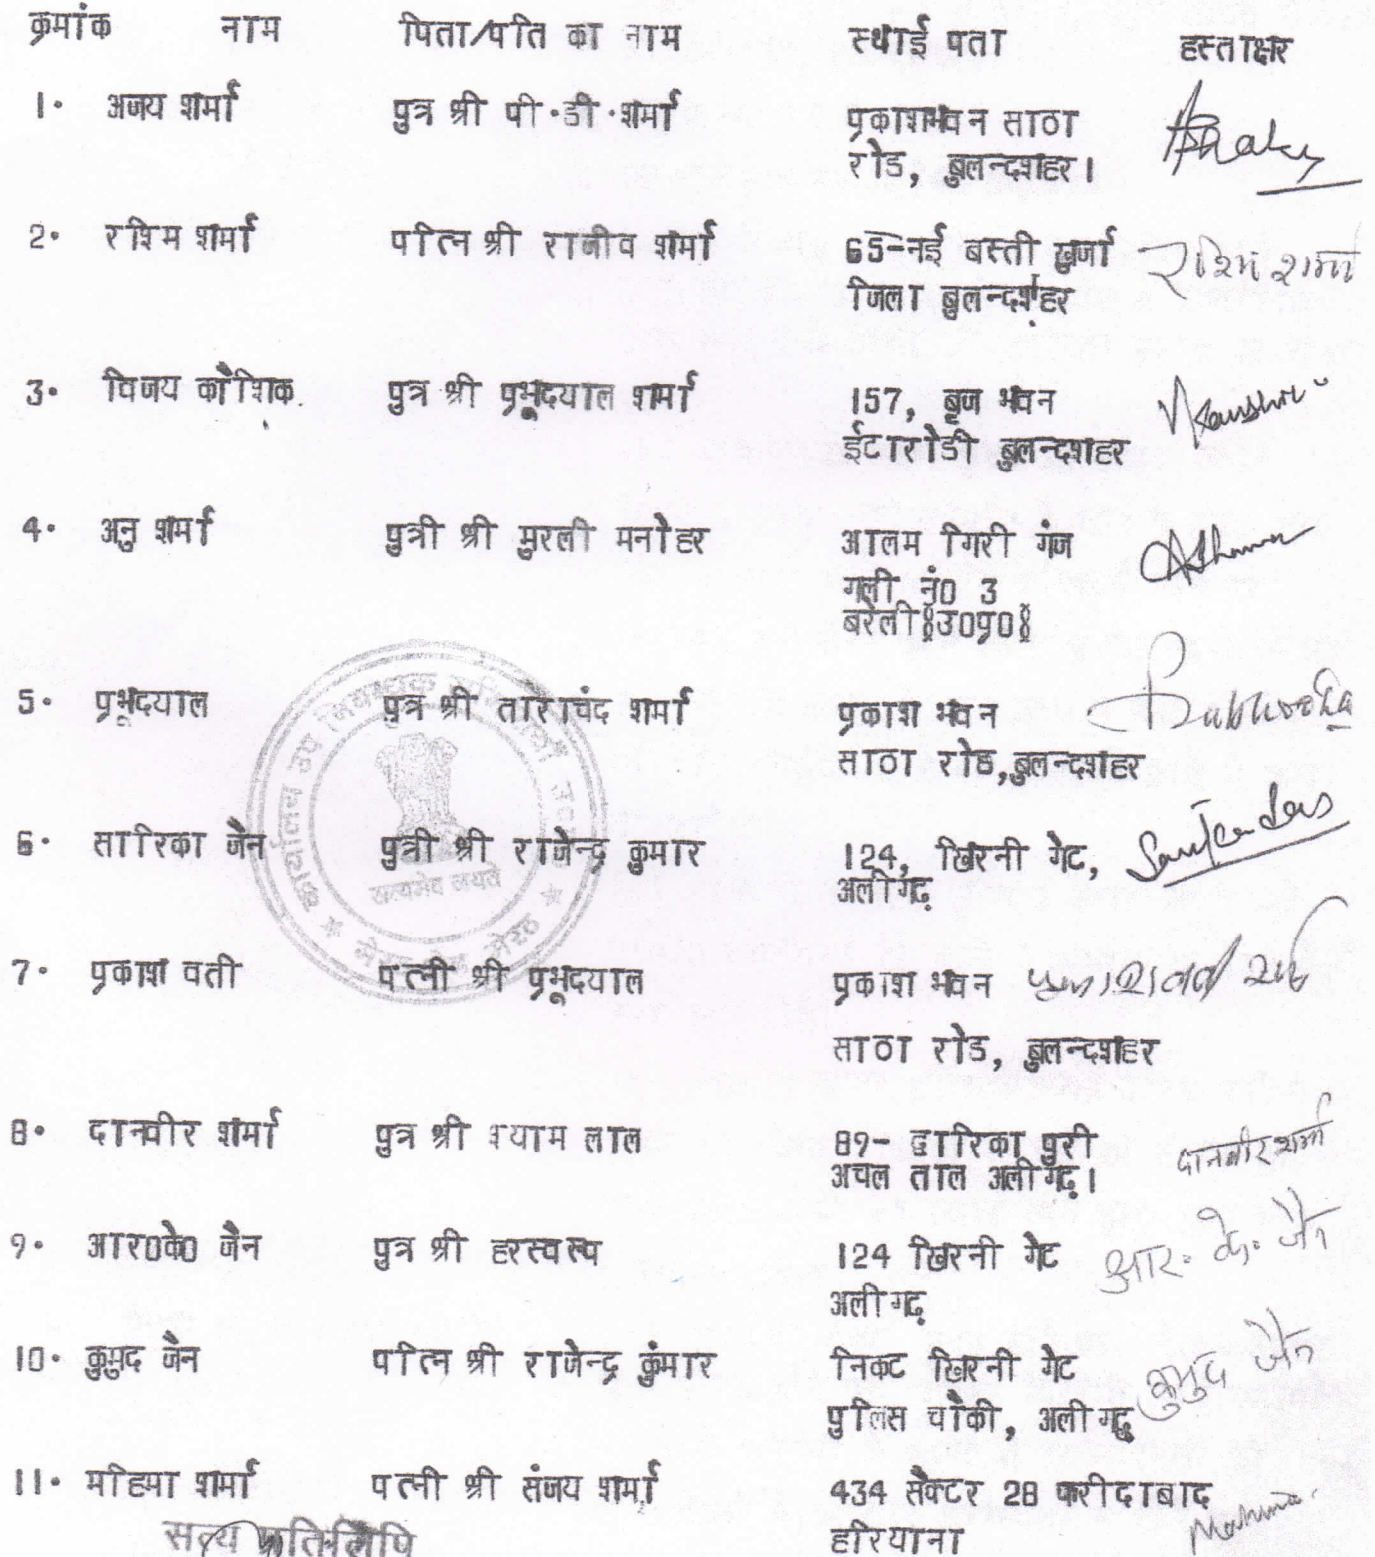 क्रमांक नाम पिता/पति का नाम स्थाई पता हस्ताक्षर
1. अजय शर्मा पुत्र श्री पी.डी.शर्मा प्रकाशभवन साठा
रोड, बुलन्दशहर।
2. रश्मि शर्मा पत्नि श्री राजीव शर्मा 65-नई बस्ती खुर्जा रश्मि शर्मा
जिला बुलन्दशहर
3. विजय कौशिक पुत्र श्री प्रभूदयाल शर्मा 157, बृज भवन
ईटारोडी बुलन्दशहर
4. अनु शर्मा पुत्री श्री मुरली मनोहर आलम गिरी गंज
गली नं0 3
बरेली(उ0प्र0)
5. प्रभूदयाल पुत्र श्री ताराचंद शर्मा प्रकाश भवन
साठा रोड,बुलन्दशहर
6. सारिका जैन पुत्री श्री राजेन्द्र कुमार 124, खिरनी गेट,
अलीगढ़
सत्यमेव जयते
7. प्रकाश वती पत्नी श्री प्रभूदयाल प्रकाश भवन
साठा रोड, बुलन्दशहर
8. दानवीर शर्मा पुत्र श्री श्याम लाल 89- द्वारिका पुरी दानवीर शर्मा
अचल ताल अलीगढ़।
9. आर0के0 जैन पुत्र श्री हरस्वरूप 124 खिरनी गेट आर. के. जैन
अलीगढ़
10. कुमुद जैन पत्नि श्री राजेन्द्र कुंमार निकट खिरनी गेट कुमुद जैन
पुलिस चौकी, अलीगढ़
11. महिमा शर्मा पत्नी श्री संजय शर्मा 434 सैक्टर 28 फरीदाबाद
हरियाणा Mahima
सत्य प्रतिलिपि